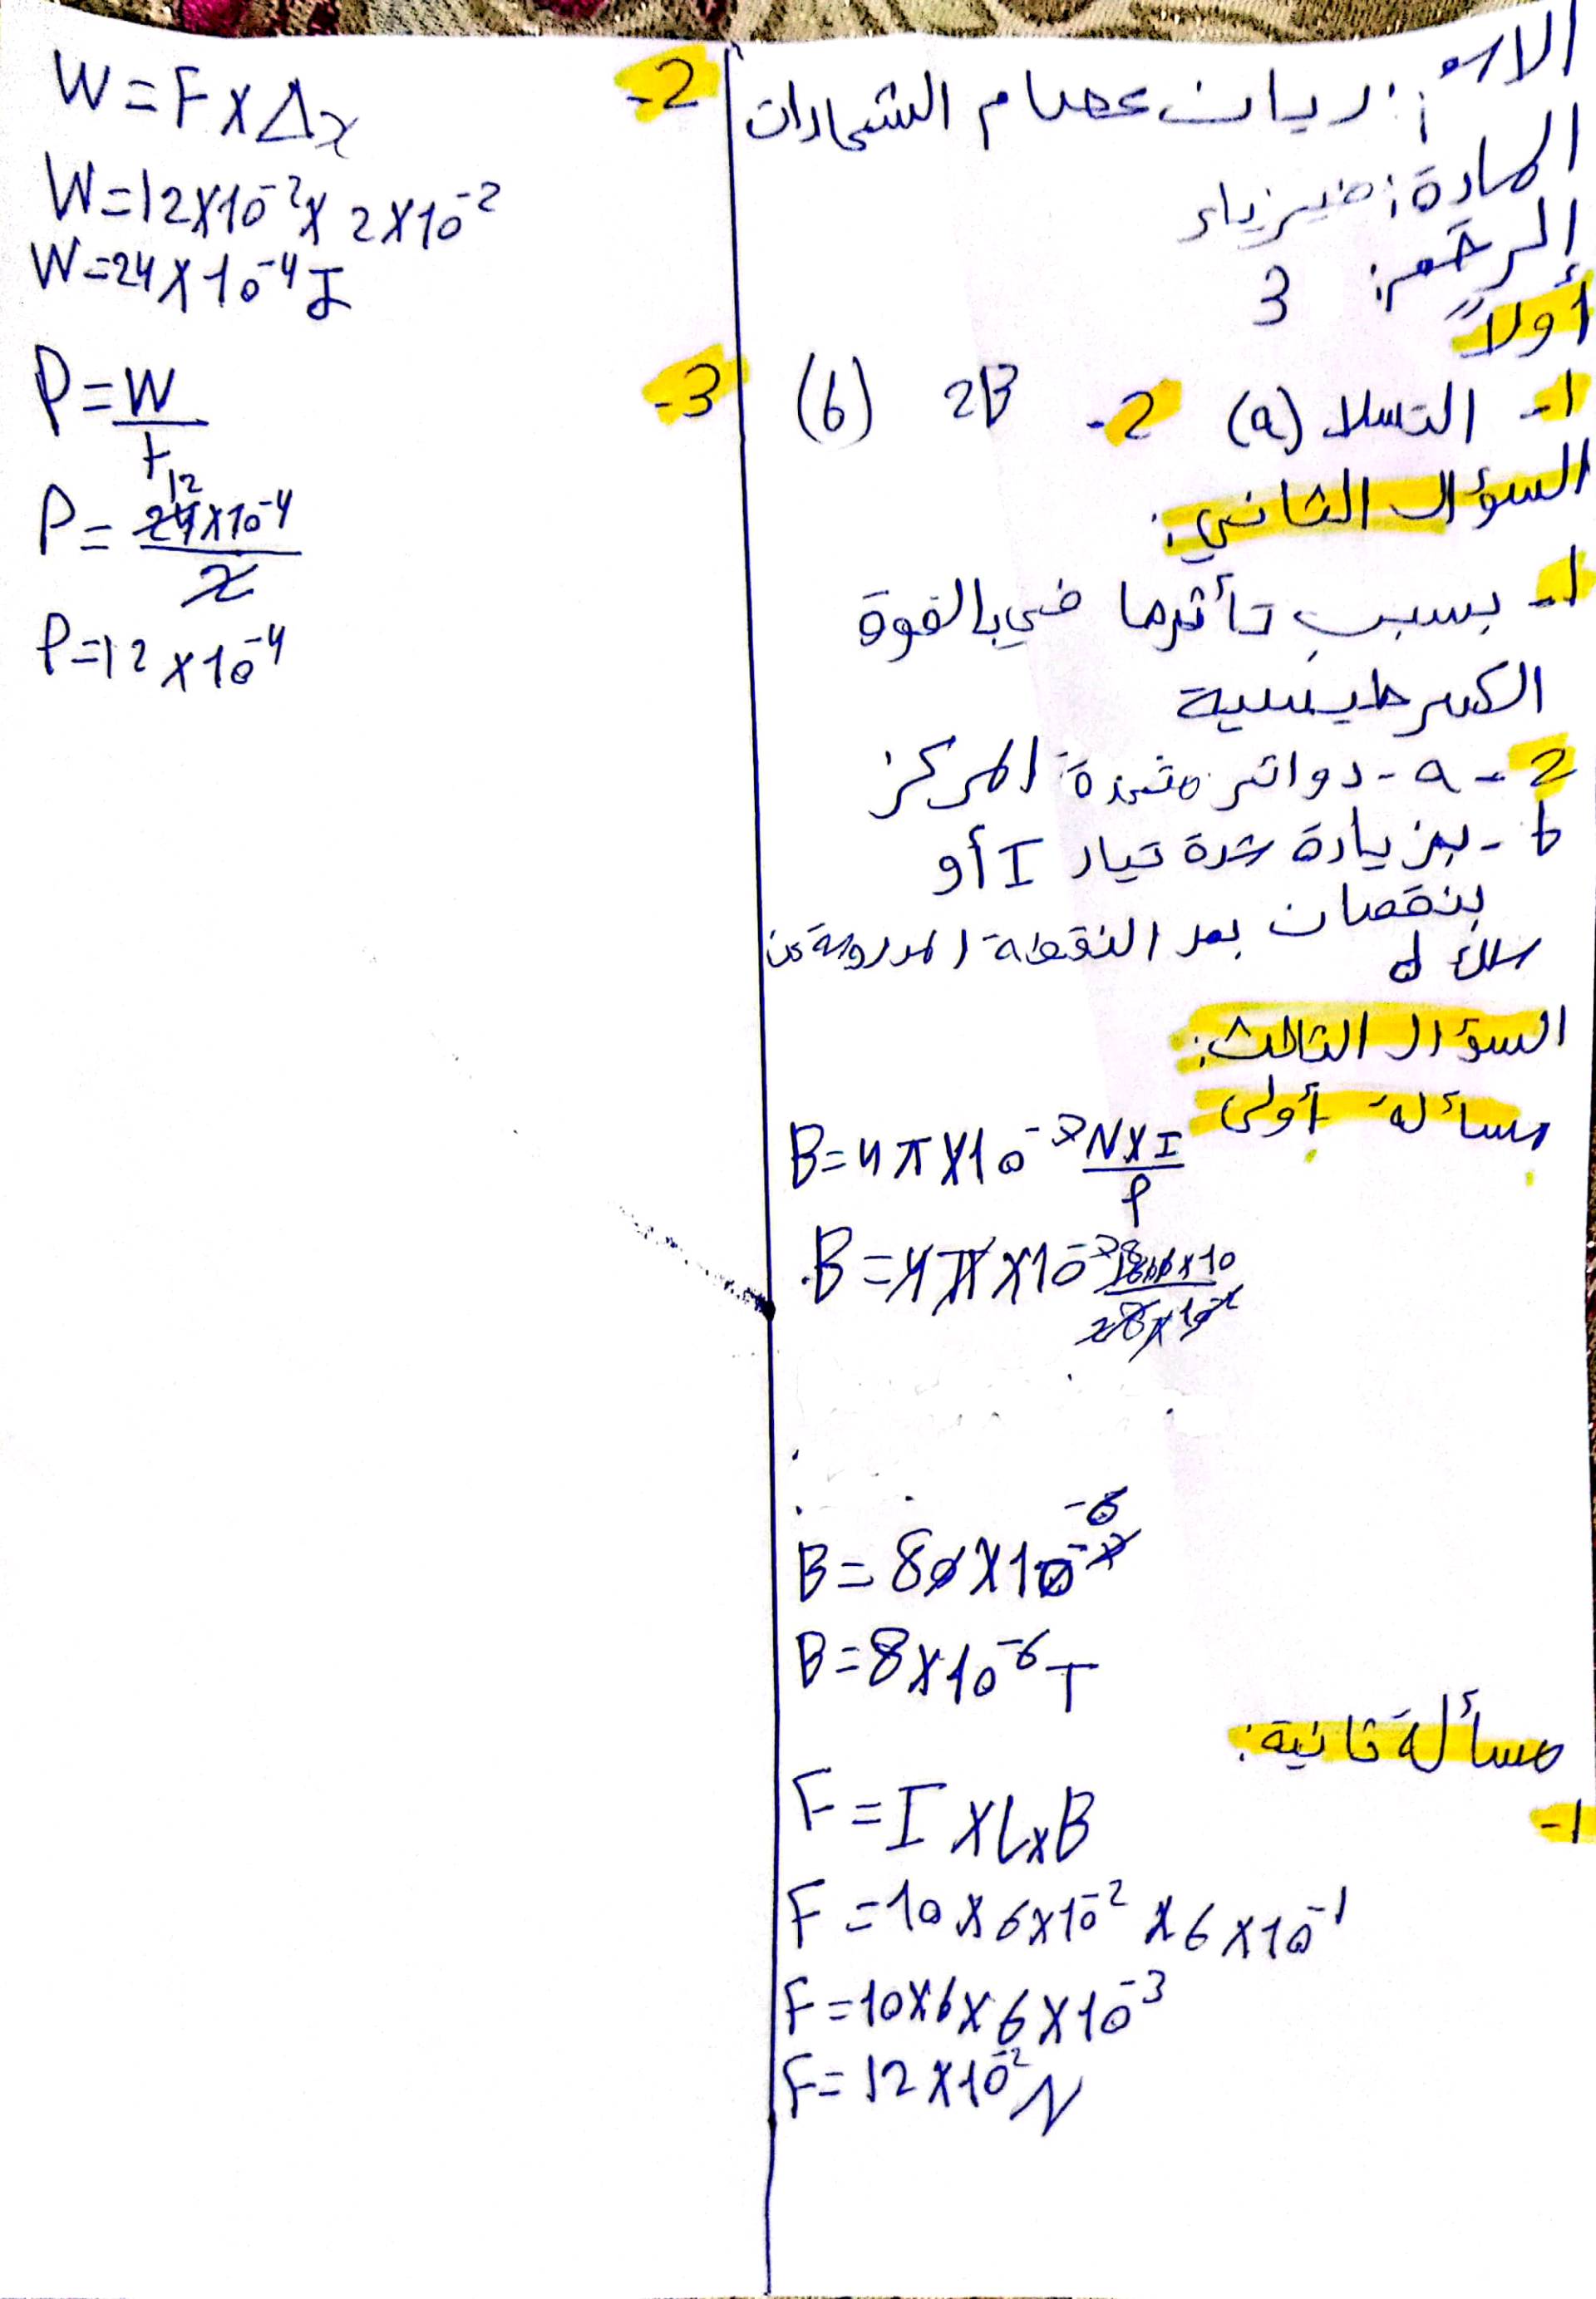 الاسم: ريان عصام الشحادات
المادة: فيزياء
الرقم: 3
أولاً
1- التسلا (a) 2- 2B (b)
السؤال الثاني:
1- بسبب تأثرها في بالقوة
الكهرطيسية
2- a- دوائر متحدة المركز
b- بزيادة شدة تيار I أو
بنقصان بعد النقطة المدروسة عن
سلك d
السؤال الثالث:
مسألة أولى
B=4π×10⁻⁷ N×I/ℓ
B=4π×10⁻⁷
B=80×10
B=8×10⁻⁶ T
مسألة ثانية:
1-
F=I×L×B
F=10×6×10⁻²×6×10⁻¹
F=10×6×6×10⁻³
F=12×10⁻² N
2- W=F×Δx
W=12×10⁻²×2×10⁻²
W=24×10⁻⁴ J
3- P=W/t
P=24×10⁻⁴/2
12
P=12×10⁻⁴